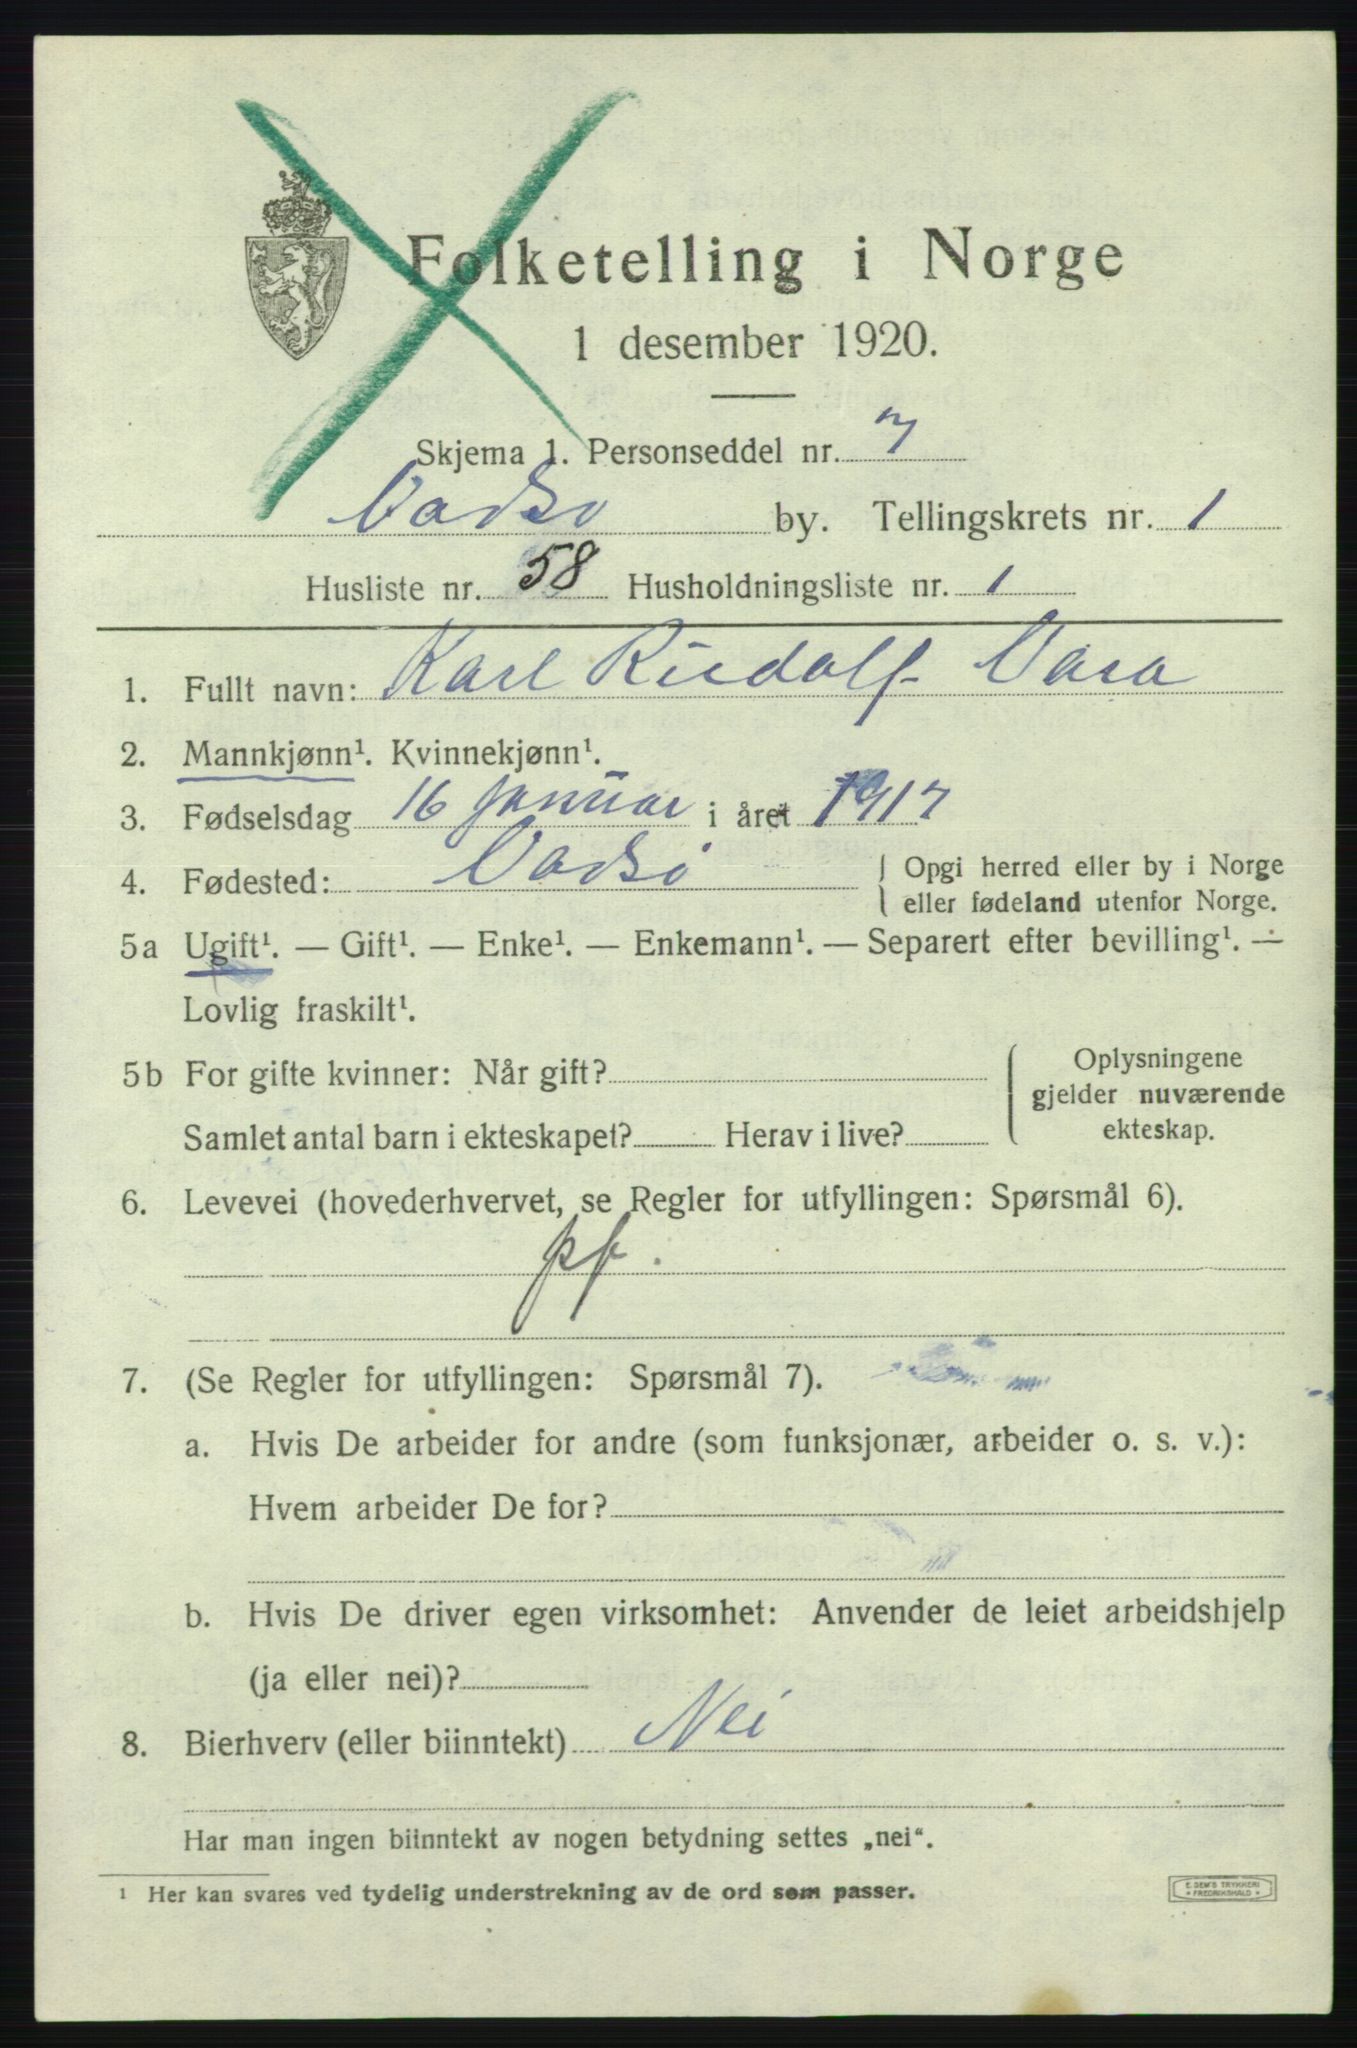 Folketelling i Norge
1 desember 1920.
Skjema 1. Personseddel nr. 7
Vadsø by. Tellingskrets nr. 1
Husliste nr. 58 Husholdningsliste nr. 1
1. Fullt navn: Karl Rudolf Vara
2. Mannkjønn¹. Kvinnekjønn¹.
3. Fødselsdag 16 januar i året 1917
4. Fødested: Vadsø { Opgi herred eller by i Norge
eller fødeland utenfor Norge.
5a Ugift¹. — Gift¹. — Enke¹. — Enkemann¹. — Separert efter bevilling¹. —
Lovlig fraskilt¹.
5b For gifte kvinner: Når gift?
Samlet antal barn i ekteskapet? Herav i live?
{ Oplysningene
gjelder nuværende
ekteskap.
6. Levevei (hovederhvervet, se Regler for utfyllingen: Spørsmål 6).
pf.
7. (Se Regler for utfyllingen: Spørsmål 7).
a. Hvis De arbeider for andre (som funksjonær, arbeider o. s. v.):
Hvem arbeider De for?
b. Hvis De driver egen virksomhet: Anvender de leiet arbeidshjelp
(ja eller nei)?
8. Bierhverv (eller biinntekt) Nei
Har man ingen biinntekt av nogen betydning settes „nei“.
¹ Her kan svares ved tydelig understrekning av de ord som passer.
E. SEM'S TRYKKERI
* FREDRIKSHALD *